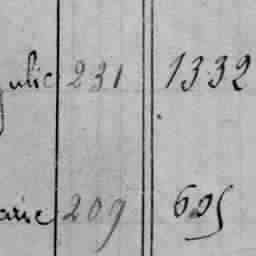 ulie 231 1332
arie 209 605